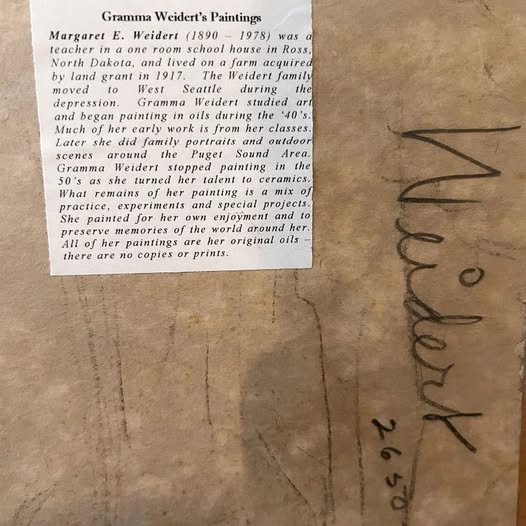 Gramma Weidert's Paintings
Margaret E. Weidert (1890 – 1978) was a
teacher in a one room school house in Ross,
North Dakota, and lived on a farm acquired
by land grant in 1917. The Weidert family
moved to West Seattle during the
depression. Gramma Weidert studied art
and began painting in oils during the '40's.
Much of her early work is from her classes.
Later she did family portraits and outdoor
scenes around the Puget Sound Area.
Gramma Weidert stopped painting in the
50's as she turned her talent to ceramics.
What remains of her painting is a mix of
practice, experiments and special projects.
She painted for her own enjoyment and to
preserve memories of the world around her.
All of her paintings are her original oils –
there are no copies or prints.
Weidert
2650